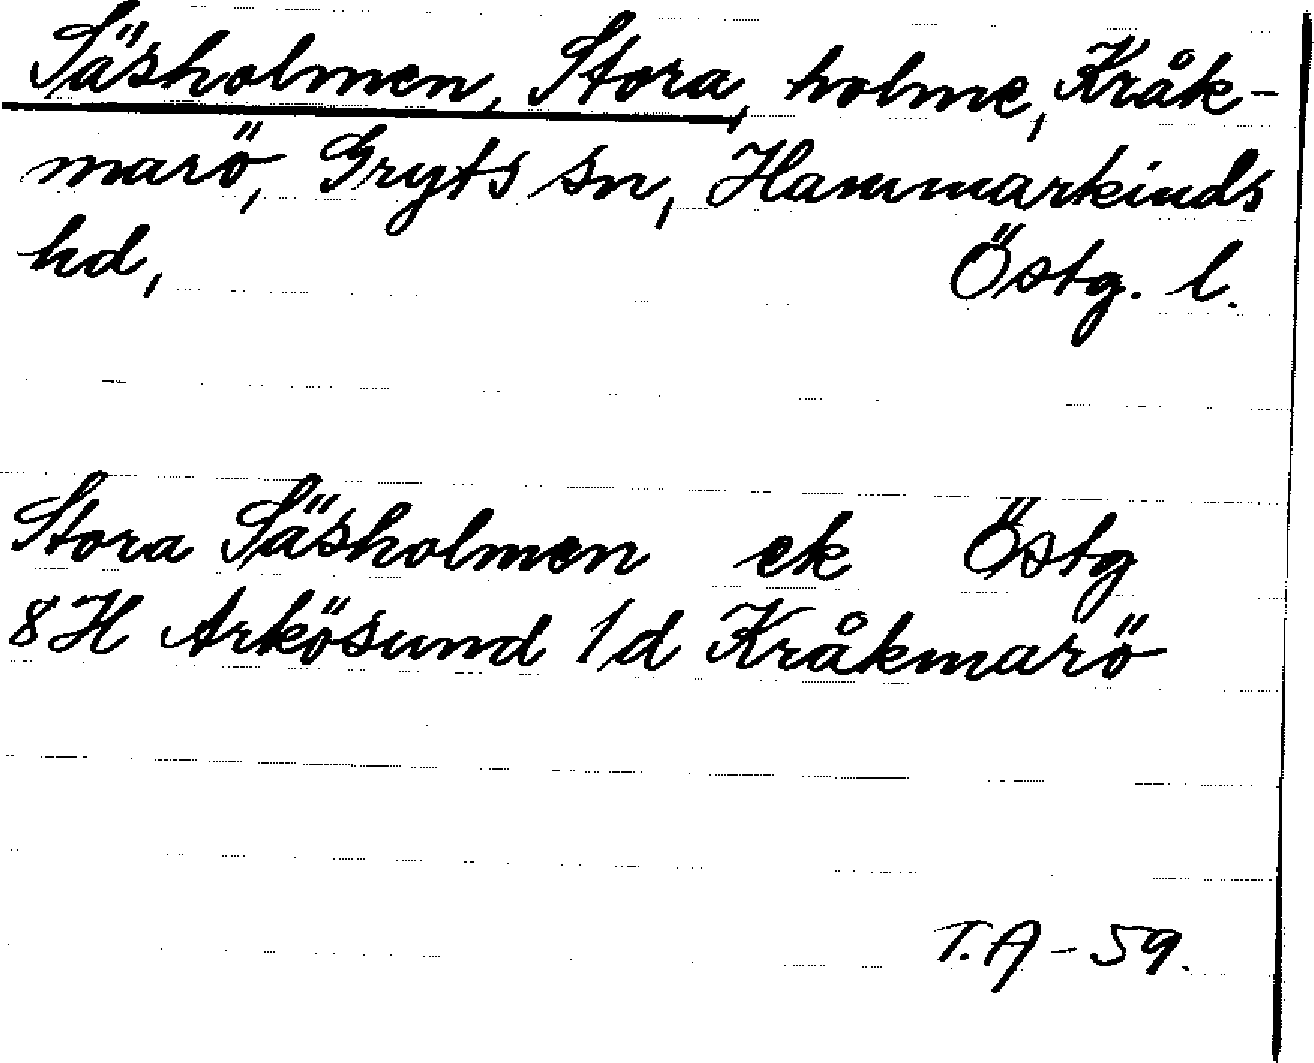 Säsholmen, Stora, holme, Kråk-
marö, Gryts sn, Hammarkinds
hd, Östg. l.
Stora Säsholmen ek Östg
8H Arkösund 1d Kråkmarö
T.A-59.